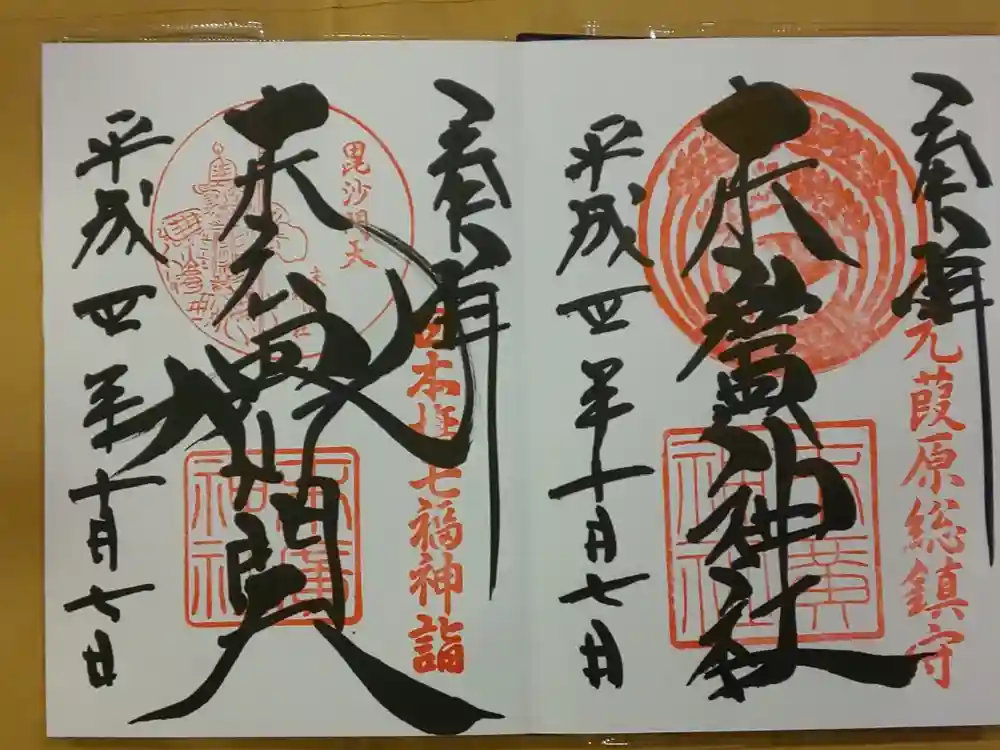 奉拝
元葭原総鎮守
末廣神社
末廣神社
平成四年十月七日
奉拝
日本橋七福神詣
毘沙門天
末廣神社
平成四年十月七日